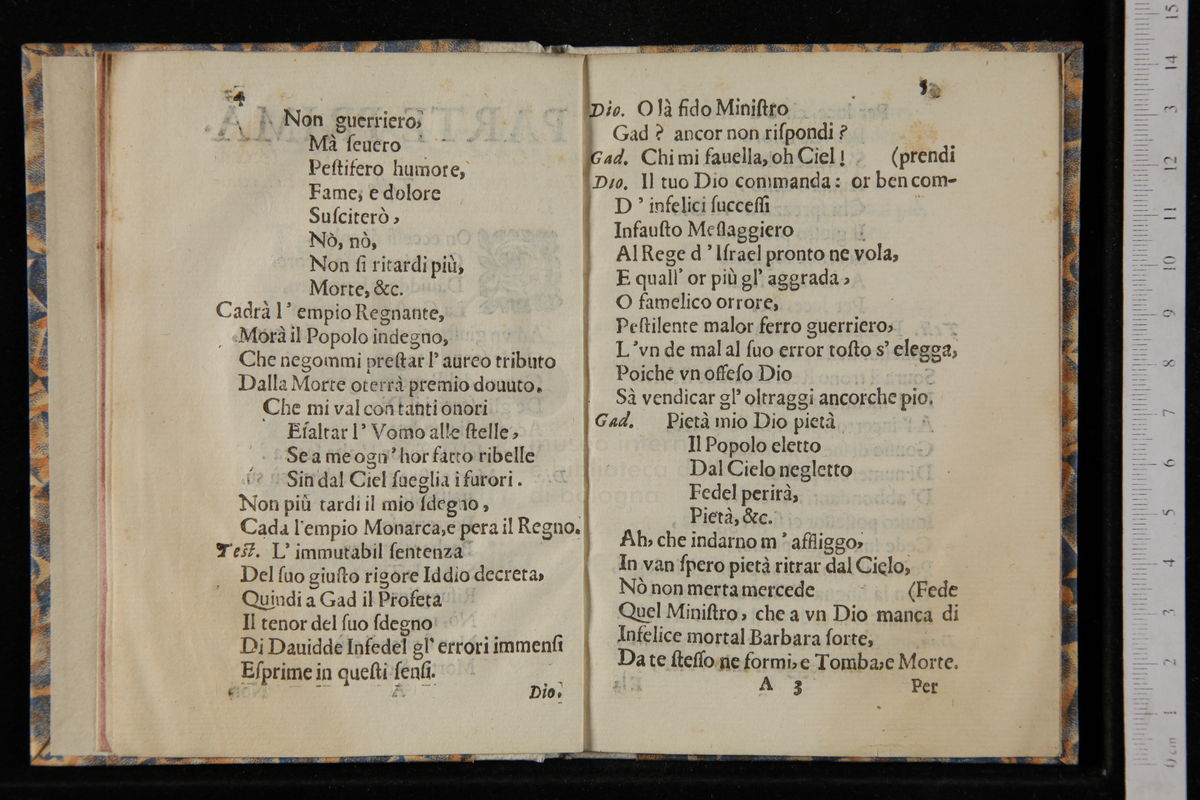 4
Non guerriero,
Mà ſeuero
Peſtifero humore,
Fame, e dolore
Suſciterò,
Nò, nò,
Non ſi ritardi più,
Morte, &c.
Cadrà l' empio Regnante,
Morà il Popolo indegno,
Che negommi preſtar l' aureo tributo
Dalla Morte oterrà premio douuto.
Che mi val con tanti onori
Eſaltar l' Vomo alle ſtelle,
Se a me ogn' hor fatto ribelle
Sin dal Ciel ſueglia i furori.
Non più tardi il mio ſdegno,
Cada l'empio Monarca, e pera il Regno.
Teſt. L' immutabil ſentenza
Del ſuo giuſto rigore Iddio decreta,
Quindi a Gad il Profeta
Il tenor del ſuo ſdegno
Di Dauidde Infedel gl' errori immenſi
Eſprime in queſti ſenſi.
Dio.
5
Dio. O là fido Miniſtro
Gad ? ancor non riſpondi ?
Gad. Chi mi fauella, oh Ciel ! (prendi
Dio. Il tuo Dio commanda : or ben com-
D' infelici ſucceſſi
Infauſto Meſſaggiero
Al Rege d' Iſrael pronto ne vola,
E quall' or più gl' aggrada,
O famelico orrore,
Peſtilente malor ferro guerriero,
L'vn de mal al ſuo error toſto s' elegga,
Poiche vn offeſo Dio
Sà vendicar gl' oltraggi ancorche pio.
Gad. Pietà mio Dio pietà
Il Popolo eletto
Dal Cielo negletto
Fedel perirà,
Pietà, &c.
Ah, che indarno m' affliggo,
In van ſpero pietà ritrar dal Cielo,
Nò non merta mercede (Fede
Quel Miniſtro, che a vn Dio manca di
Infelice mortal Barbara ſorte,
Da te ſteſſo ne formi, e Tomba, e Morte.
A 3 Per
0 cm 1 2 3 4 5 6 7 8 9 10 11 12 3 14 15